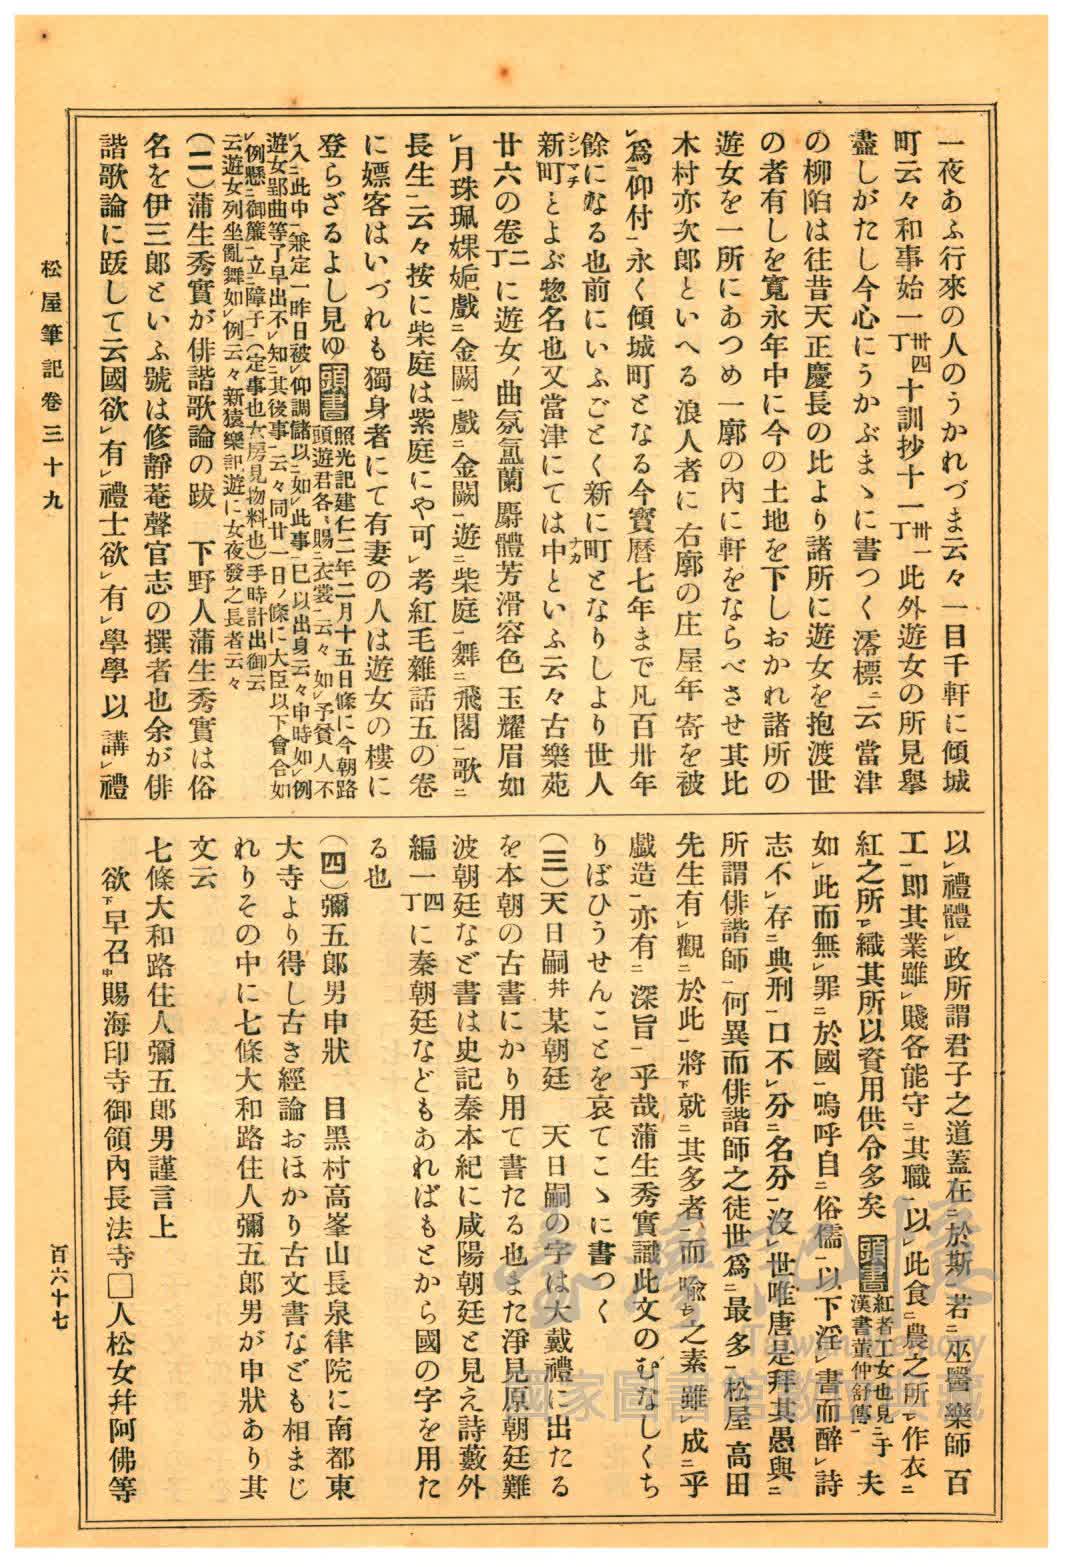 一夜あふ行來の人のうかれづま云々一目千軒に傾城
町云々和事始一卅四丁十訓抄十一卅一丁此外遊女の所見擧
盡しがたし今心にうかぶまゝに書つく澪標ニ云當津
の柳陌は往昔天正慶長の比より諸所に遊女を抱渡世
の者有しを寛永年中に今の土地を下しおかれ諸所の
遊女を一所にあつめ一廓の内に軒をならべさせ其比
木村亦次郎といへる浪人者に右廓の庄屋年寄を被
レ爲二仰付一永く傾城町となる今寶曆七年まで凡百卅年
餘になる也前にいふごとく新に町となりしより世人
新町シンマチとよぶ惣名也又當津にては中ナカといふ云々古樂苑
廿六の卷二丁に遊女ノ曲氛氳蘭麝體芳滑容色玉耀眉如
レ月珠珮婐㛂戲二金闕一戲二金闕一遊二柴庭一舞二飛閣一歌二
長生一云々按に柴庭は紫庭にや可レ考紅毛雜話五の卷
に嫖客はいづれも獨身者にて有妻の人は遊女の樓に
登らざるよし見ゆ頭書照光記建仁二年二月十五日條に今朝路
頭遊君各〻賜二衣裳一云々如レ予貧人不
レ入二此中一兼定一昨日被レ仰調儲以二如レ此事一已以出身云々申時如レ例
遊女郢曲等了早出不レ知二其後事一云々同廿一日ノ條に大臣以下會合如
レ例懸二御簾一立二障子一（定事也女房見物料也）手時計出御云
云遊女列坐亂舞如レ例云々新猿樂記遊に女夜發之長者云々
（二）蒲生秀實が俳諧歌論の跋　下野人蒲生秀實は俗
名を伊三郎といふ號は修靜菴聲官志の撰者也余が俳
諧歌論に跋して云國欲レ有レ禮士欲レ有レ學學以講レ禮
以レ禮體レ政所謂君子之道蓋在二於斯一若二巫醫樂師百
工一卽其業雖レ賤各能守二其職一以レ此食二農之所一レ作衣二
紅之所一レ織其所以資用供令多矣頭書紅者工女也見二于
漢書董仲舒傳一夫
如レ此而無レ罪二於國一嗚呼自二俗儒一以下淫レ書而醉レ詩
志不レ存二典刑一口不レ分二名分一沒レ世唯唐是拜其愚與二
所謂俳諧師一何異而俳諧師之徒世爲二最多一松屋高田
先生有レ觀二於此一將下就二其多者一而喩上レ之素雖レ成二乎
戲造一亦有二深旨一乎哉蒲生秀實識此文のむなしくち
りぼひうせんことを哀てこゝに書つく
（三）天日嗣幷某朝廷　天日嗣の字は大戴禮に出たる
を本朝の古書にかり用て書たる也また淨見原朝廷難
波朝廷など書は史記秦本紀に咸陽朝廷と見え詩藪外
編一四丁に秦朝廷などもあればもとから國の字を用た
る也
（四）彌五郎男申狀　目黑村高峯山長泉律院に南都東
大寺より得し古き經論おほかり古文書なども相まじ
れりその中に七條大和路住人彌五郎男が申狀あり其
文云
七條大和路住人彌五郎男謹言上
欲下早召申賜海印寺御領內長法寺□人松女幷阿佛等
松屋筆記卷三十九
百六十七
臺灣記憶
Taiwan Memory
國家圖書館數位典藏